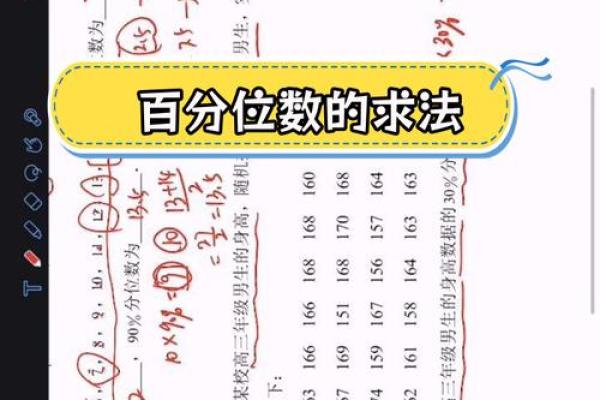 百分位数的求法
7, 8, 9, 10, 11, 12, 13,
数为
, 90%分位数为 13.5 .
25
13+14
2
=27/2=13.5
某校高三年级男生的身高，随机
男生，
下：
63 166 166 168 168 160
67 169 151 168 170 168
74 159 167 156 157 164
62 161 158 164 163 163
三年级男生的身高数据的30%分
30%
T